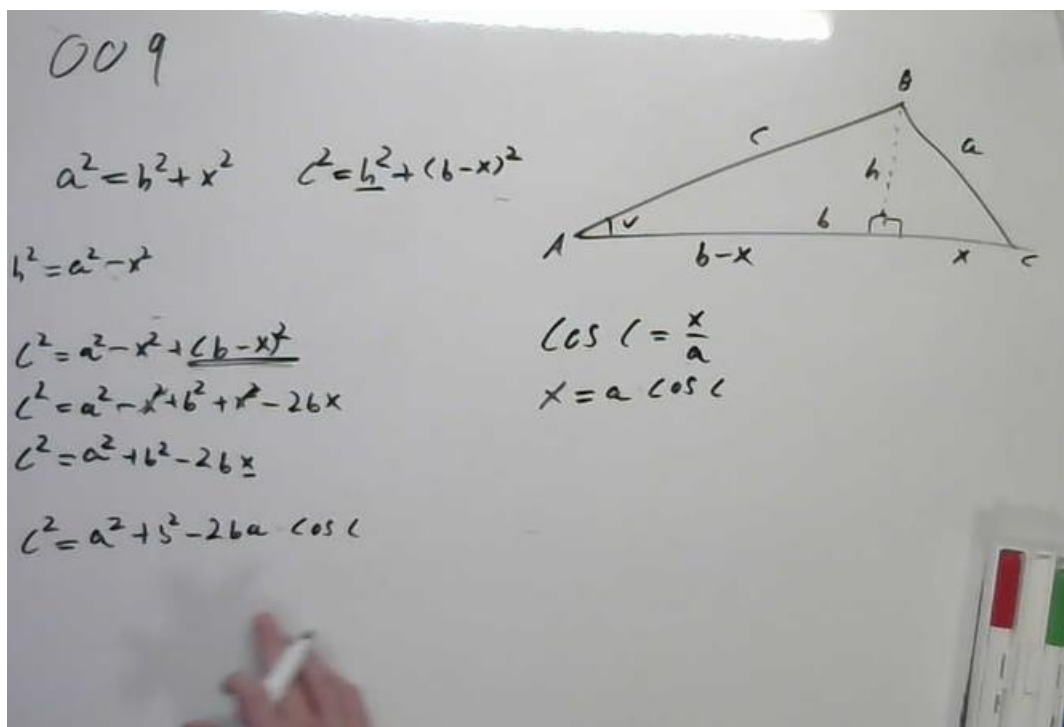 009
a² = h² + x²   c² = h² + (b-x)²
h² = a² - x²
c² = a² - x² + (b-x)²
c² = a² - x² + b² + x² - 2bx
c² = a² + b² - 2bx
c² = a² + b² - 2ba cos C
B
c
a
h
A
v
b
b-x
x
C
Cos C = x/a
x = a cos C